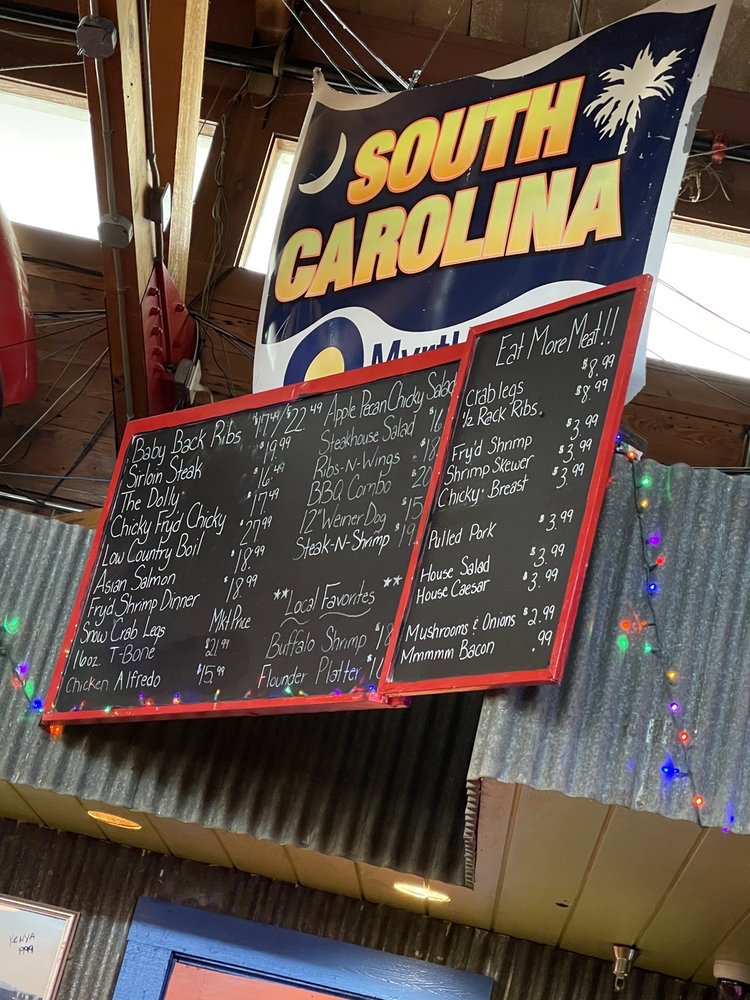 SOUTH
CAROLINA
Baby Back Ribs $17.49/$22.49
Sirloin Steak $19.99
The Dolly $16.49
Chicky Fryd Chicky $17.49
Low Country Boil $27.99
Asian Salmon $18.99
Fry'd Shrimp Dinner $18.99
Snow Crab Legs Mkt Price
16oz. T-Bone $21.99
Chicken Alfredo $15.99
Apple Pecan Chicky Salad
Steakhouse Salad $16
Ribs-N-Wings $18
BBQ Combo $20
12" Weiner Dog $15
Steak-N-Shrimp $19
**Local Favorites**
Buffalo Shrimp $18
Flounder Platter
Eat More Meat!!
Crab legs $8.99
1/2 Rack Ribs. $8.99
Fry'd Shrimp $3.99
Shrimp Skewer $3.99
Chicky. Breast $3.99
Pulled Pork $3.99
House Salad $3.99
House Caesar $3.99
Mushrooms & Onions $2.99
Mmmmm Bacon .99
KENYA
1999